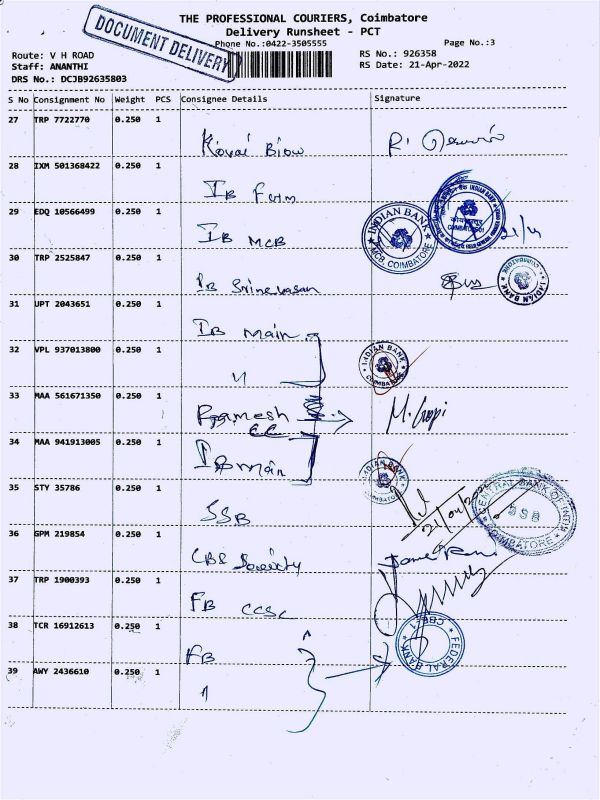 THE PROFESSIONAL COURIERS, Coimbatore
Delivery Runsheet - PCT
DOCUMENT DELIVERY
Phone No.:0422-3505555
Page No.:3
Route: V H ROAD
RS No.: 926358
Staff: ANANTHI
RS Date: 21-Apr-2022
DRS No.: DCJB92635803
S No Consignment No Weight PCS Consignee Details Signature
27 TRP 7722770 0.250 1
28 IXM 501368422 0.250 1
IB
29 EDQ 10566499 0.250 1
IB MCB
INDIAN BANK
MCB, COIMBATORE
21/4
30 TRP 2525847 0.250 1
IB Srinevasan
INDIAN BANK
COIMBATORE
31 UPT 2043651 0.250 1
IB main
32 VPL 937013800 0.250 1
"
INDIAN BANK
COIMBATORE
33 MAA 561671350 0.250 1
Ramesh
M. Gopi
34 MAA 941913005 0.250 1
IB main
INDIAN BANK
35 STY 35786 0.250 1
SSB
21/04/202
CENTRAL BANK OF INDIA
SSB
COIMBATORE
36 GPM 219854 0.250 1
CBE Society
37 TRP 1900393 0.250 1
FB CCSC
38 TCR 16912613 0.250 1
FB
FEDERAL BANK
CBE-1
39 AWY 2436610 0.250 1